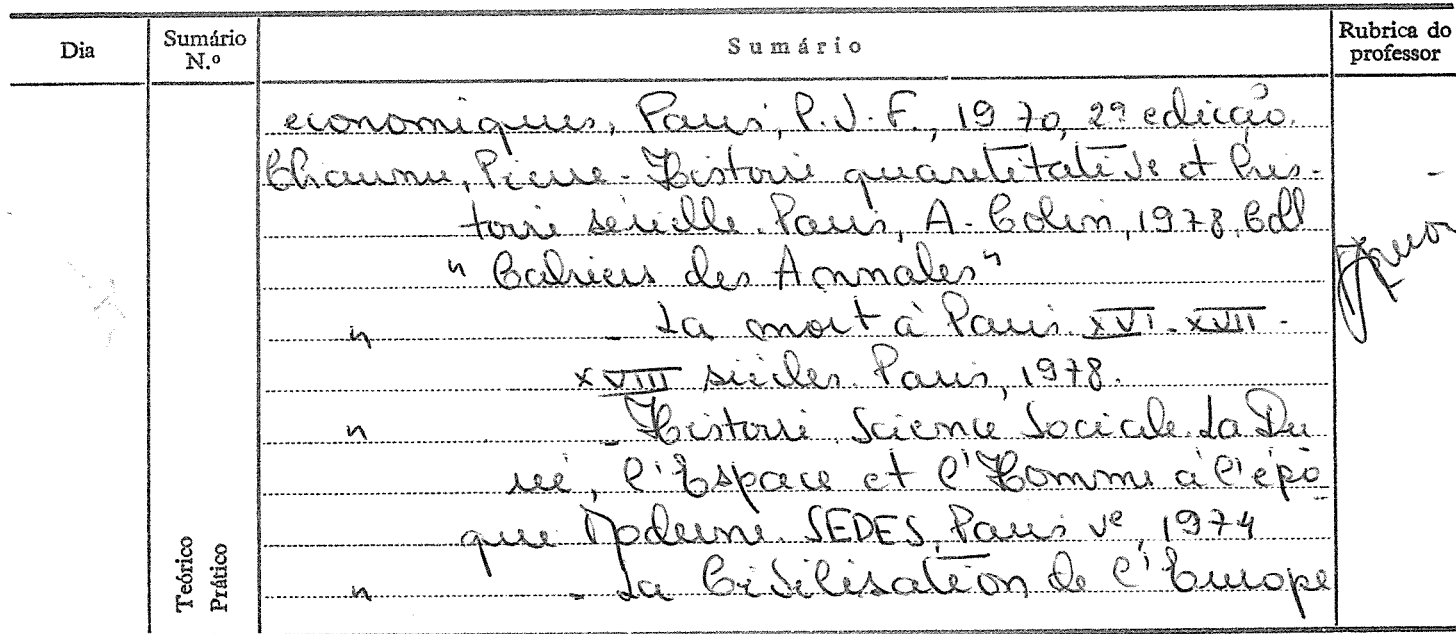 Dia
Sumário N.º
Sumário
Rubrica do professor
economiques, Paris, P.U.F., 1970, 2ª edicção.
Chaunu, Pierre - Histoire quantitative et his-
toire sérielle. Paris, A. Colin, 1978, Coll
"Cahiers des Annales"
" - La mort à Paris XVI - XVII -
XVIII siécles. Paris, 1978.
" - Histoire Science Sociale. La Du
rée, l'Espace et l'Homme à l'épo
que Moderne. SEDES, Paris Ve, 1974
" - La Civilisation de l'Europe
Teórico
Prático